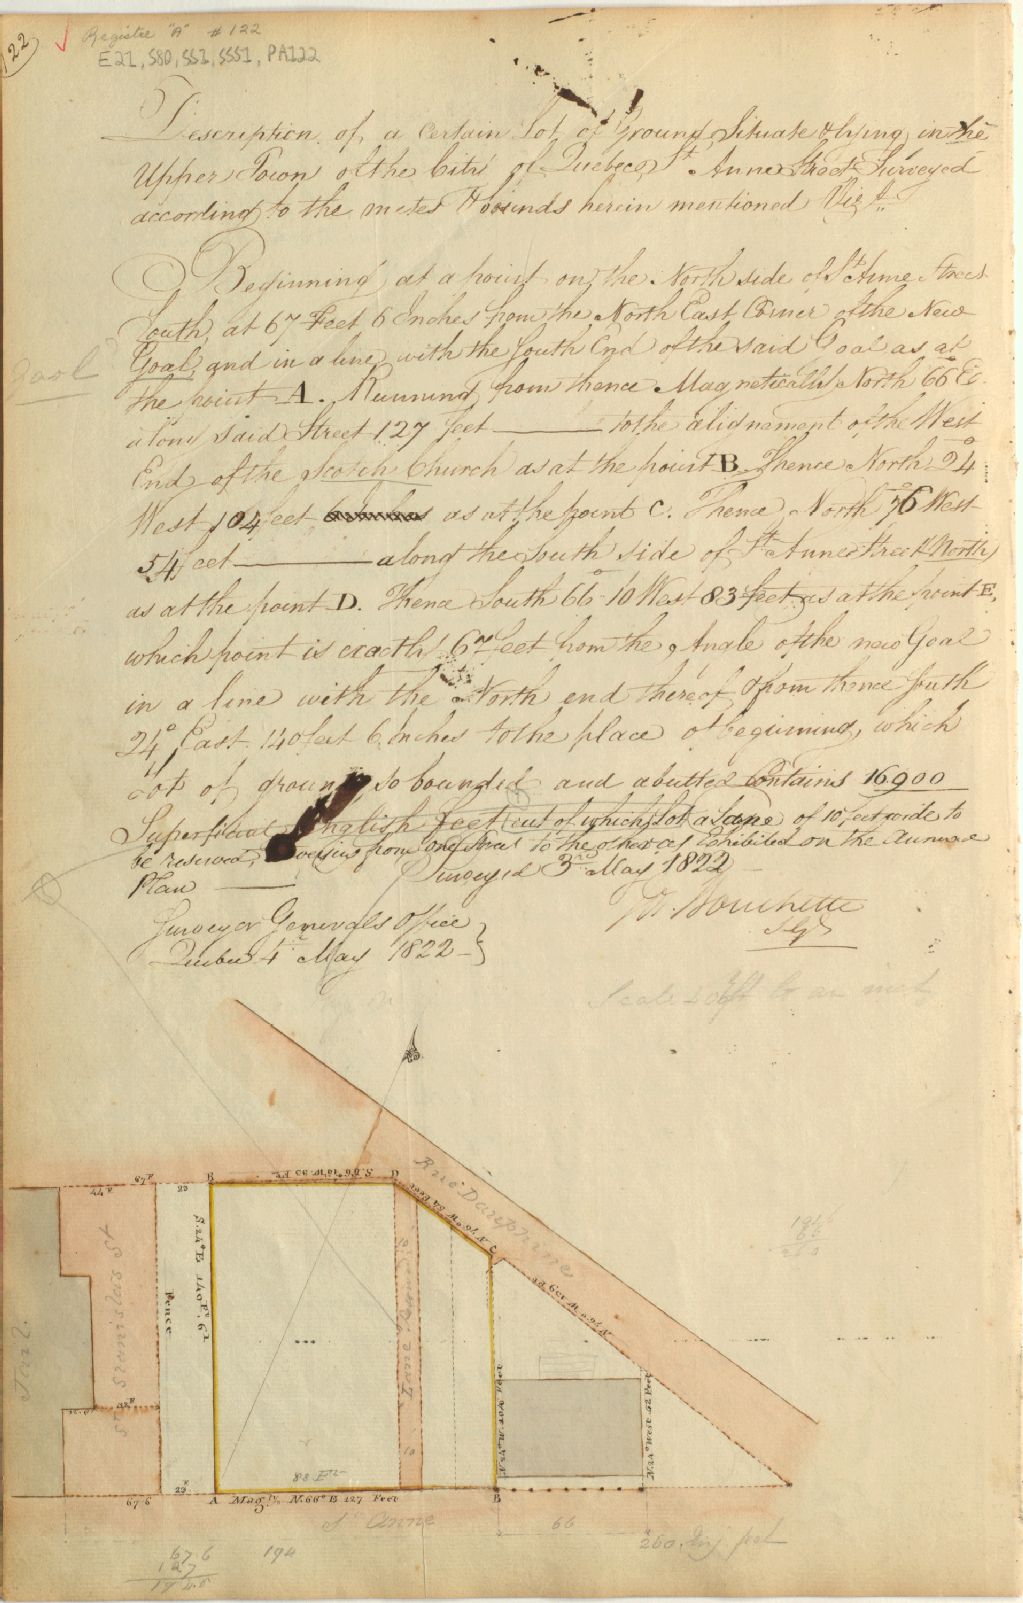 122
Registre "A" # 122
E21, S80, SS1, SSS1, PA122
Description of a certain Lot of Ground Situate & lying in the
Upper Town of the City of Quebec, St. Anne Street Surveyed
according to the metes & bounds herein mentioned Vizt.
Beginning at a point on the North side of St Anne Street
South, at 67 Feet 6 Inches from the North East Corner of the New
Gaol
Goal, and in a line with the South End of the said Goal as at
the point A. Running from thence Magnetically North 66° Et.
along said Street 127 feet to the alignement of the West
End of the Scotch Church as at the point B. Thence North 24°
West 104 feet as at the point C. Thence North 76° West
54 feet along the South side of St Anne Street North
as at the point D. Thence South 66° 10 West 83 feet as at the point E,
which point is exactly 67 feet from the Angle of the new Goal
in a line with the North end thereof & from thence South
24° East 140 feet 6 Inches to the place of beginning, which
Lot of ground so bounded and abutted Contains 16900
Superficial English feet out of which lot a Lane of 10 feet wide to
be reserved, from one Street to the other as Exhibited on the Annexed
Plan Surveyed 3rd May 1822
Jos. Bouchette
S G
Surveyor Generals Office
Quebec 4th May 1822
Scale
Rue Dauphine
S. 66° 10 W. 83 Ft.
E
D
N. 76° W. 54 Feet
C
N. 76° W. 109 Ft
44
67
23
S. 24° E 140 Ft. 6 I
Fence
St Stanislas St
Jail
Lane
10
88 Ft
N. 24° W. 104 Feet
N. 24° West 42 Feet
67 6
23
A Magly. N. 66° E 127 Feet
B
St Anne
66
260
67.6
127
194.6
194
194
66
260